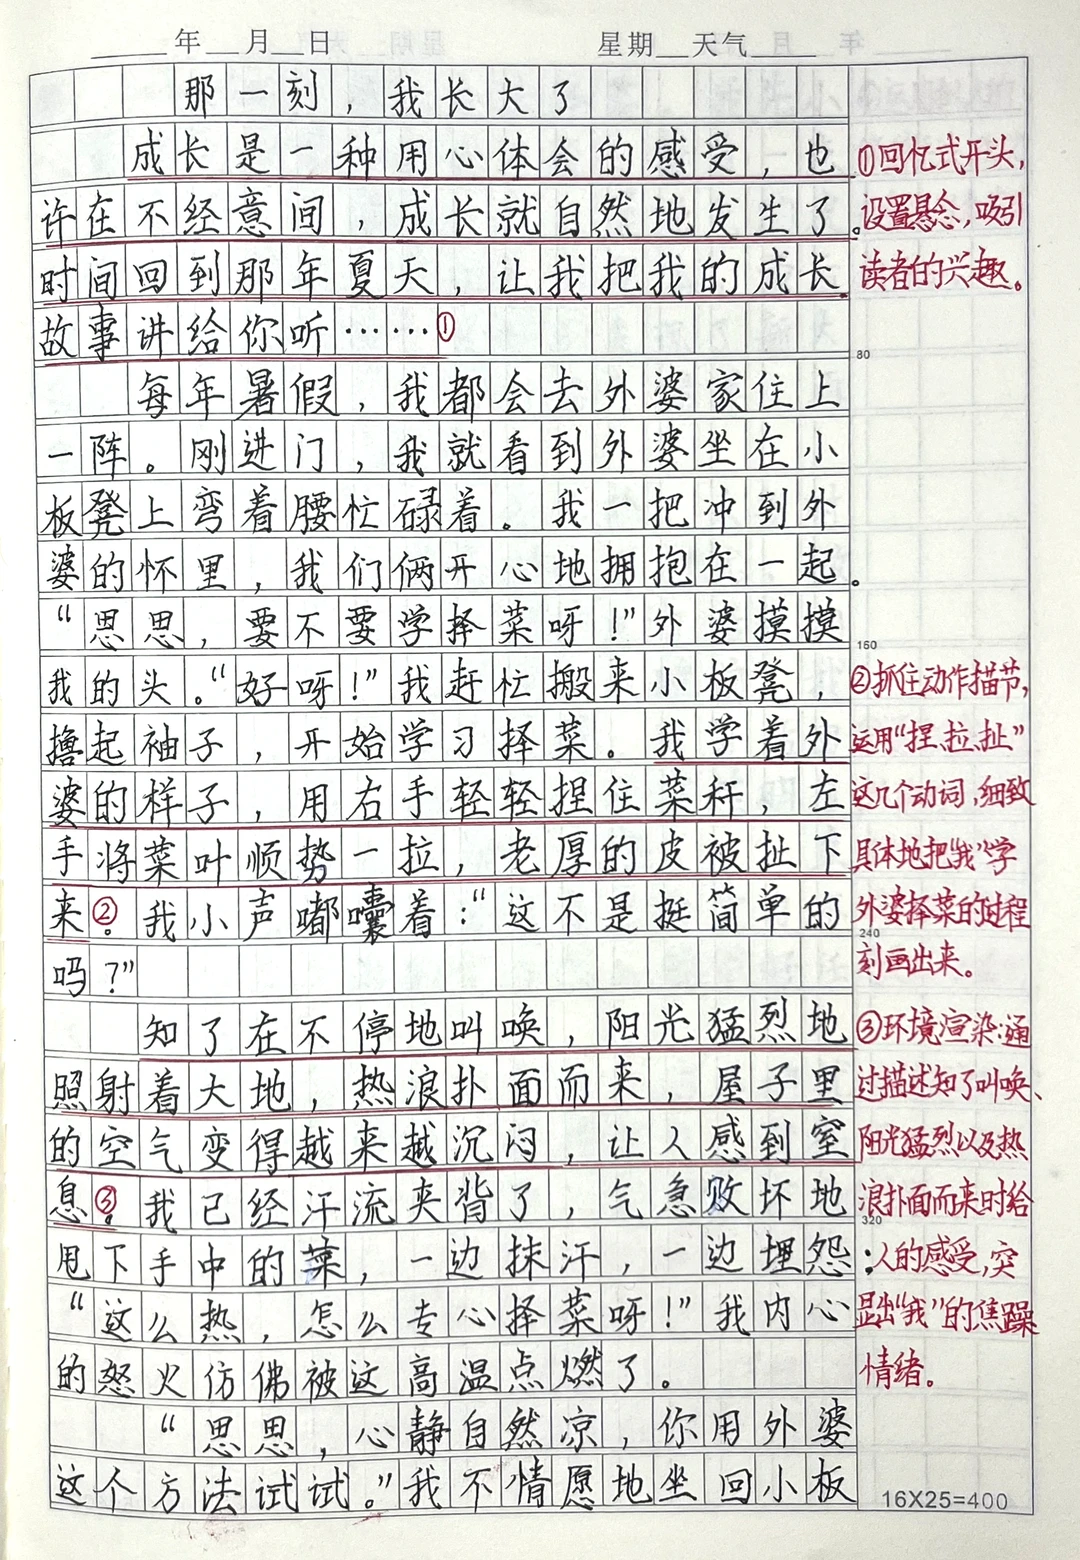 年 月 日 星期 天气
那一刻，我长大了
成长是一种用心体会的感受，也
许在不经意间，成长就自然地发生了。
时间回到那年夏天，让我把我的成长
故事讲给你听……①
每年暑假，我都会去外婆家住上
一阵。刚进门，我就看到外婆坐在小
板凳上弯着腰忙碌着。我一把冲到外
婆的怀里，我们俩开心地拥抱在一起。
“思思，要不要学择菜呀！”外婆摸摸
我的头。“好呀！”我赶忙搬来小板凳，
撸起袖子，开始学习择菜。我学着外
婆的样子，用右手轻轻捏住菜秆，左
手将菜叶顺势一拉，老厚的皮被扯下
来②。我小声嘟囔着：“这不是挺简单的
吗？”
知了在不停地叫唤，阳光猛烈地
照射着大地，热浪扑面而来，屋子里
的空气变得越来越沉闷，让人感到窒
息③。我已经汗流夹背了，气急败坏地
甩下手中的菜，一边抹汗，一边埋怨：
“这么热，怎么专心择菜呀！”我内心
的怒火仿佛被这高温点燃了。
“思思，心静自然凉，你用外婆
这个方法试试。”我不情愿地坐回小板
①回忆式开头，
设置悬念，吸引
读者的兴趣。
80
160
②抓住动作描节，
运用“捏、拉、扯”
这几个动词，细致
具体地把“我”学
外婆择菜的过程
240
刻画出来。
③环境渲染：通
过描述知了叫唤、
阳光猛烈以及热
浪扑面而来时给
320
人的感受，突
显出“我”的焦躁
情绪。
16X25=400